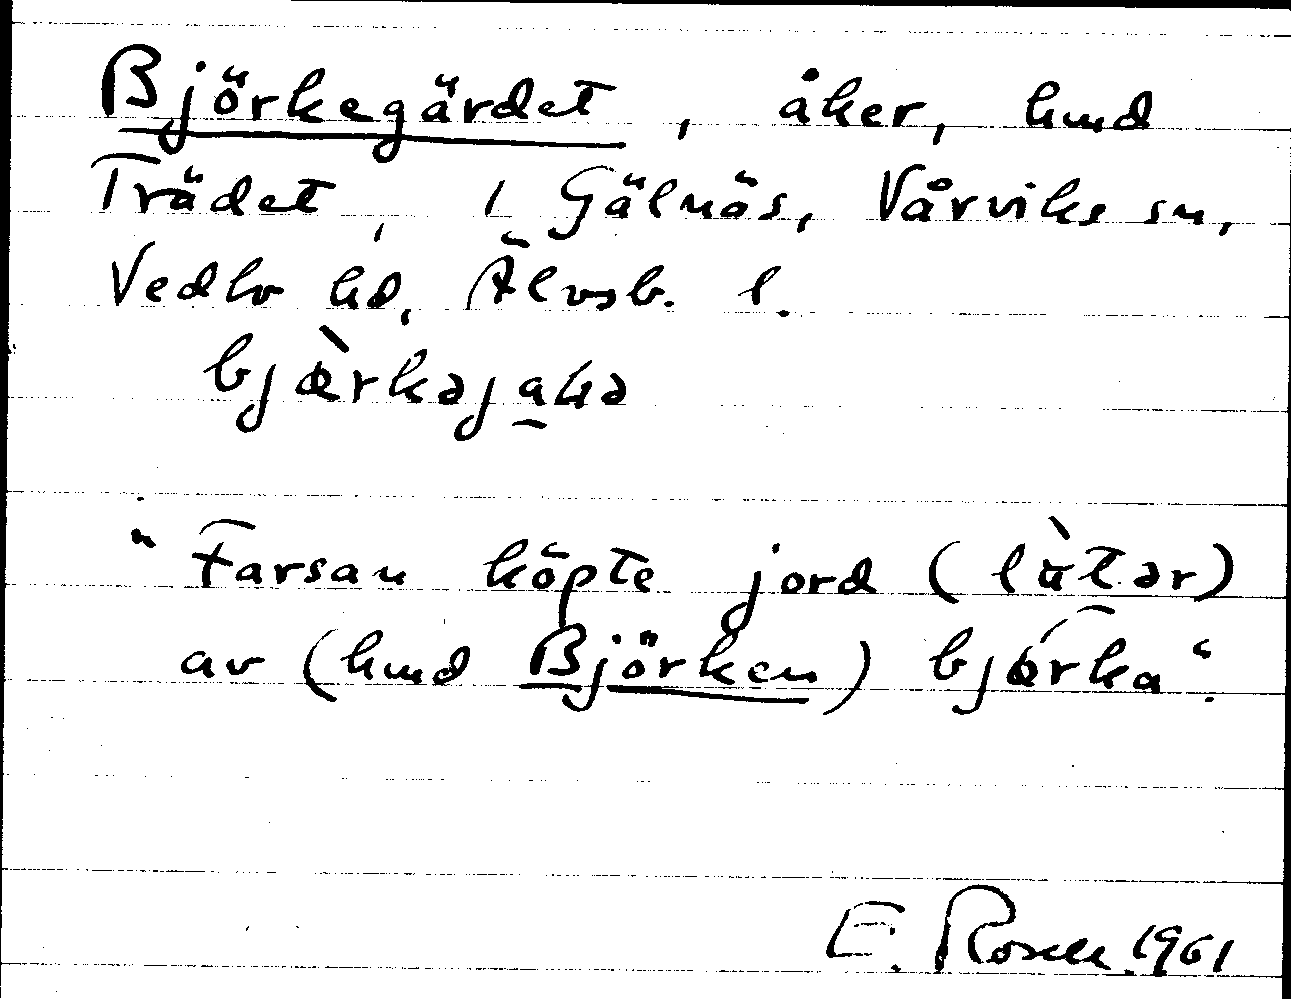 Björkegärdet, åker, hmd
Trädet, i Gälnäs, Vårviks sn,
Vedbo hd, Älvsb. l.
bjæ̀rkəj
"Farsan köpte jord (lùtər)
av (hmd Björken) bjǿrka".
E. Rosell 1961